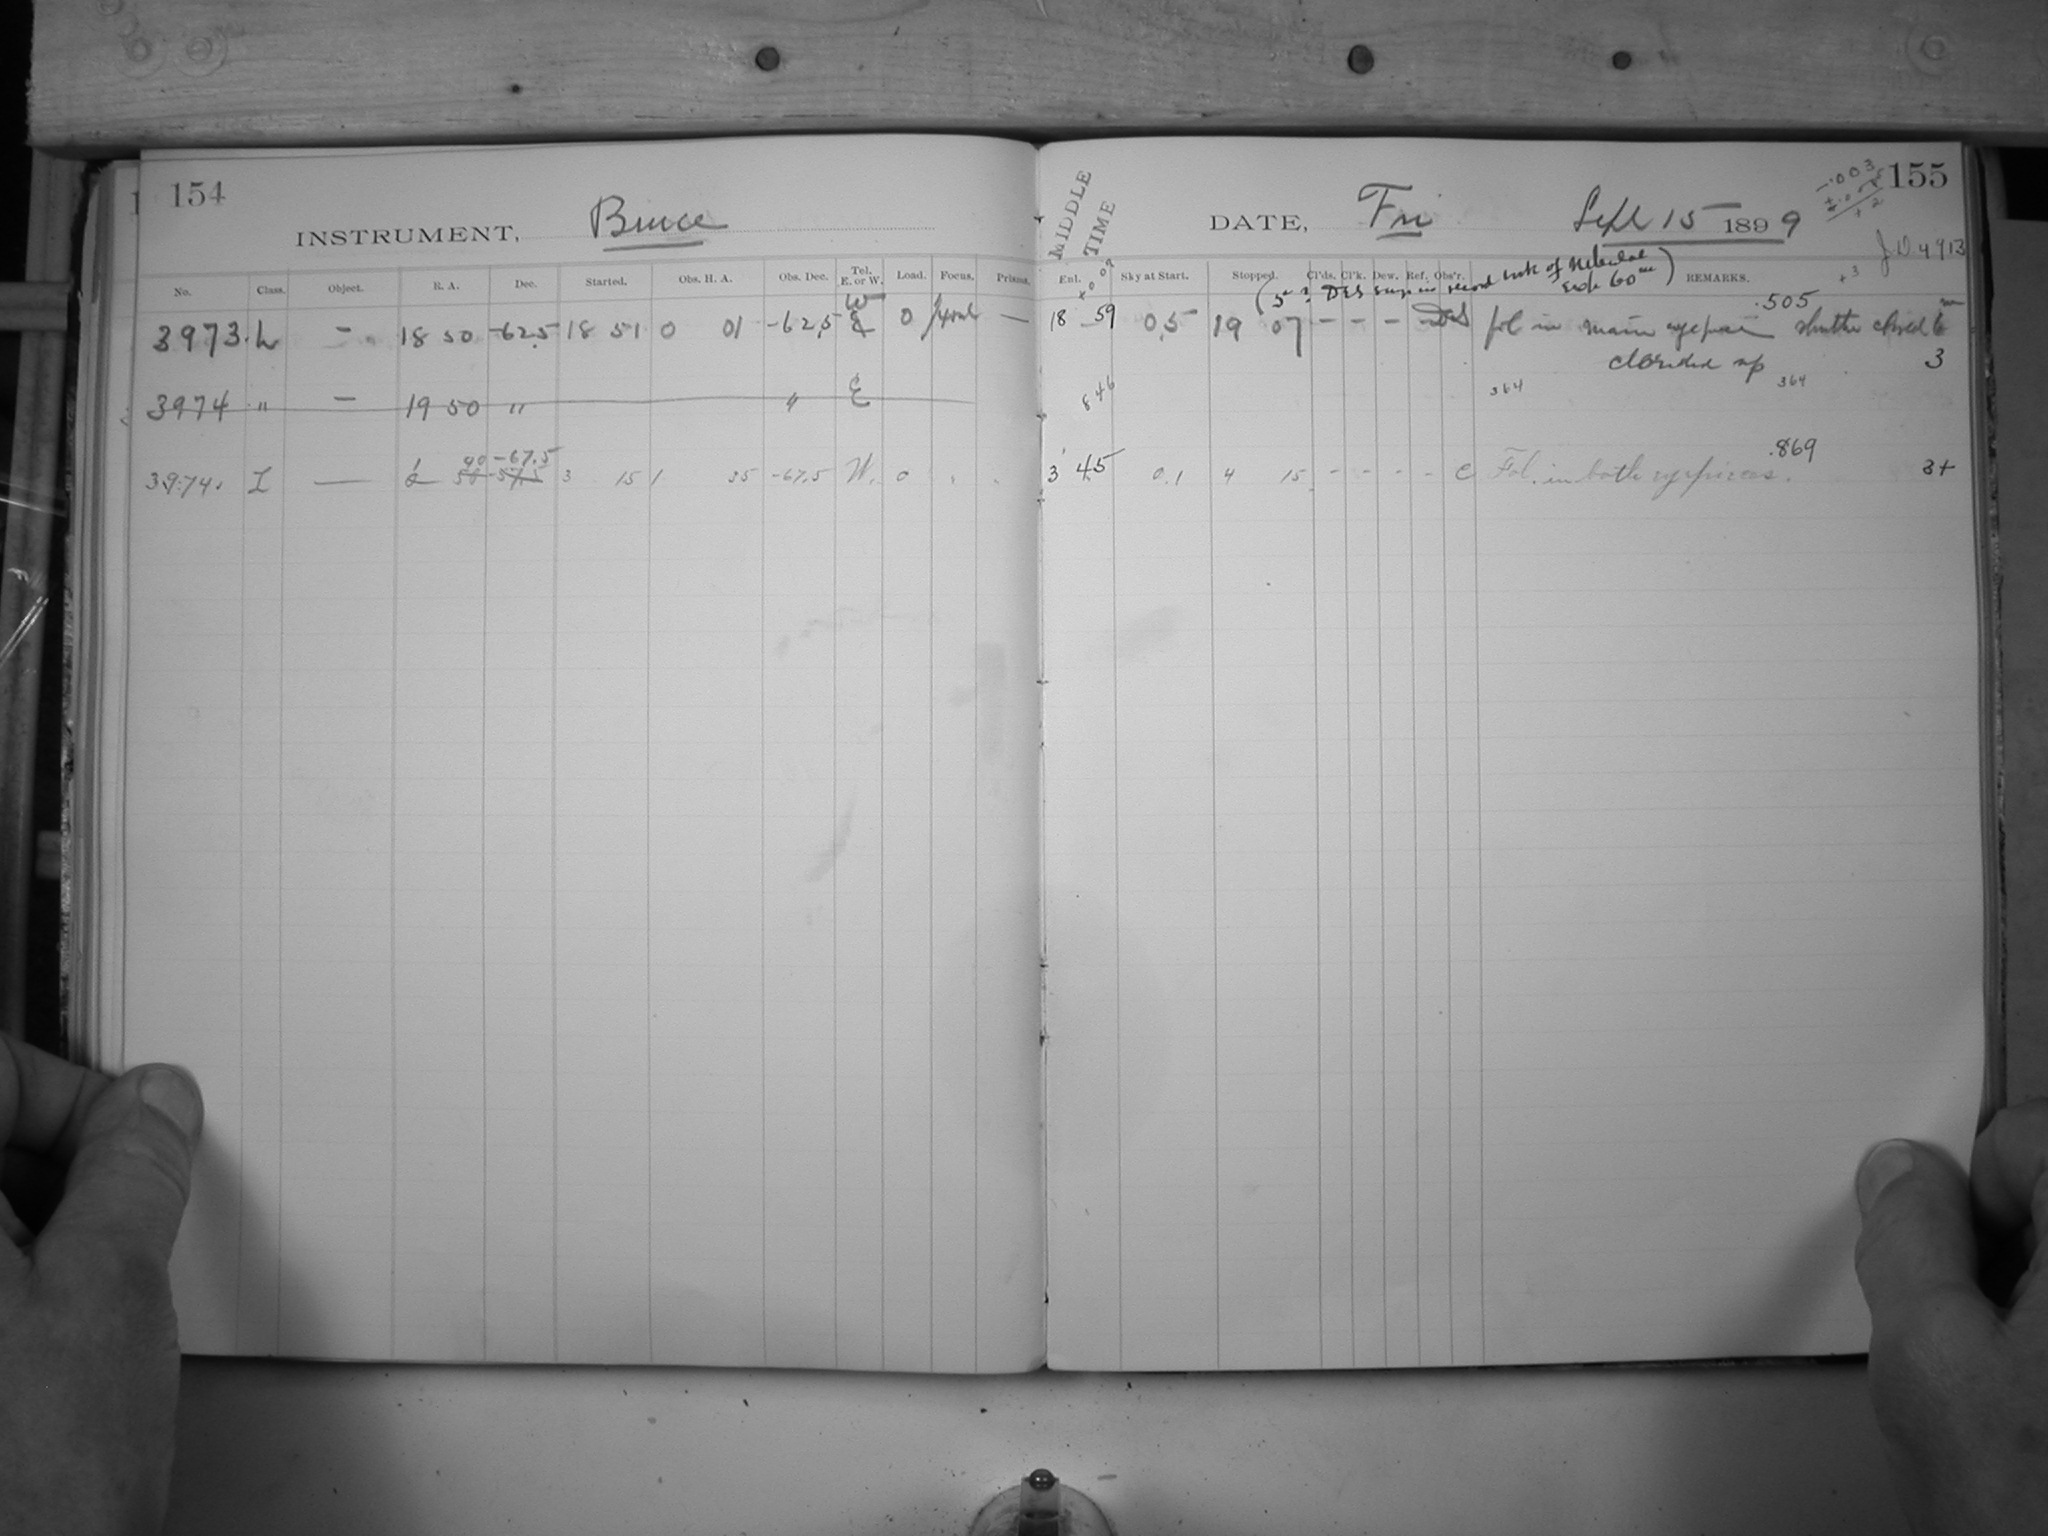 154
INSTRUMENT, Bruce
No. Class. Object. R. A. Dec. Started. Obs. H. A. Obs. Dec. Tel. E. or W. Load. Focus. Prisms.
W
3973. L – 18 50 -62.5 18 51 0 01 -62.5 E 0 —
3974 " – 19 50 " " E
40 -67.5
3974. L — 1 50 -57.5 3 15 1 35 -67.5 W. 0
155
-.003
MIDDLE TIME
DATE, Fri Sept 15 1899
J D 4913
+3
Enl. Sky at Start. Stopped. Cl'ds. Cl'k. Dew. Ref. Obs'r. REMARKS.
DES record book of Nebulae
Exp 60m
.505
18 59 0.5 19 07 – – – – DES fol in main eyepiece shutter closed 6m
clouded up 3
846 364 364
.869
3 45 0.1 4 15 – – – – C Fol. in both eyepieces. 3+